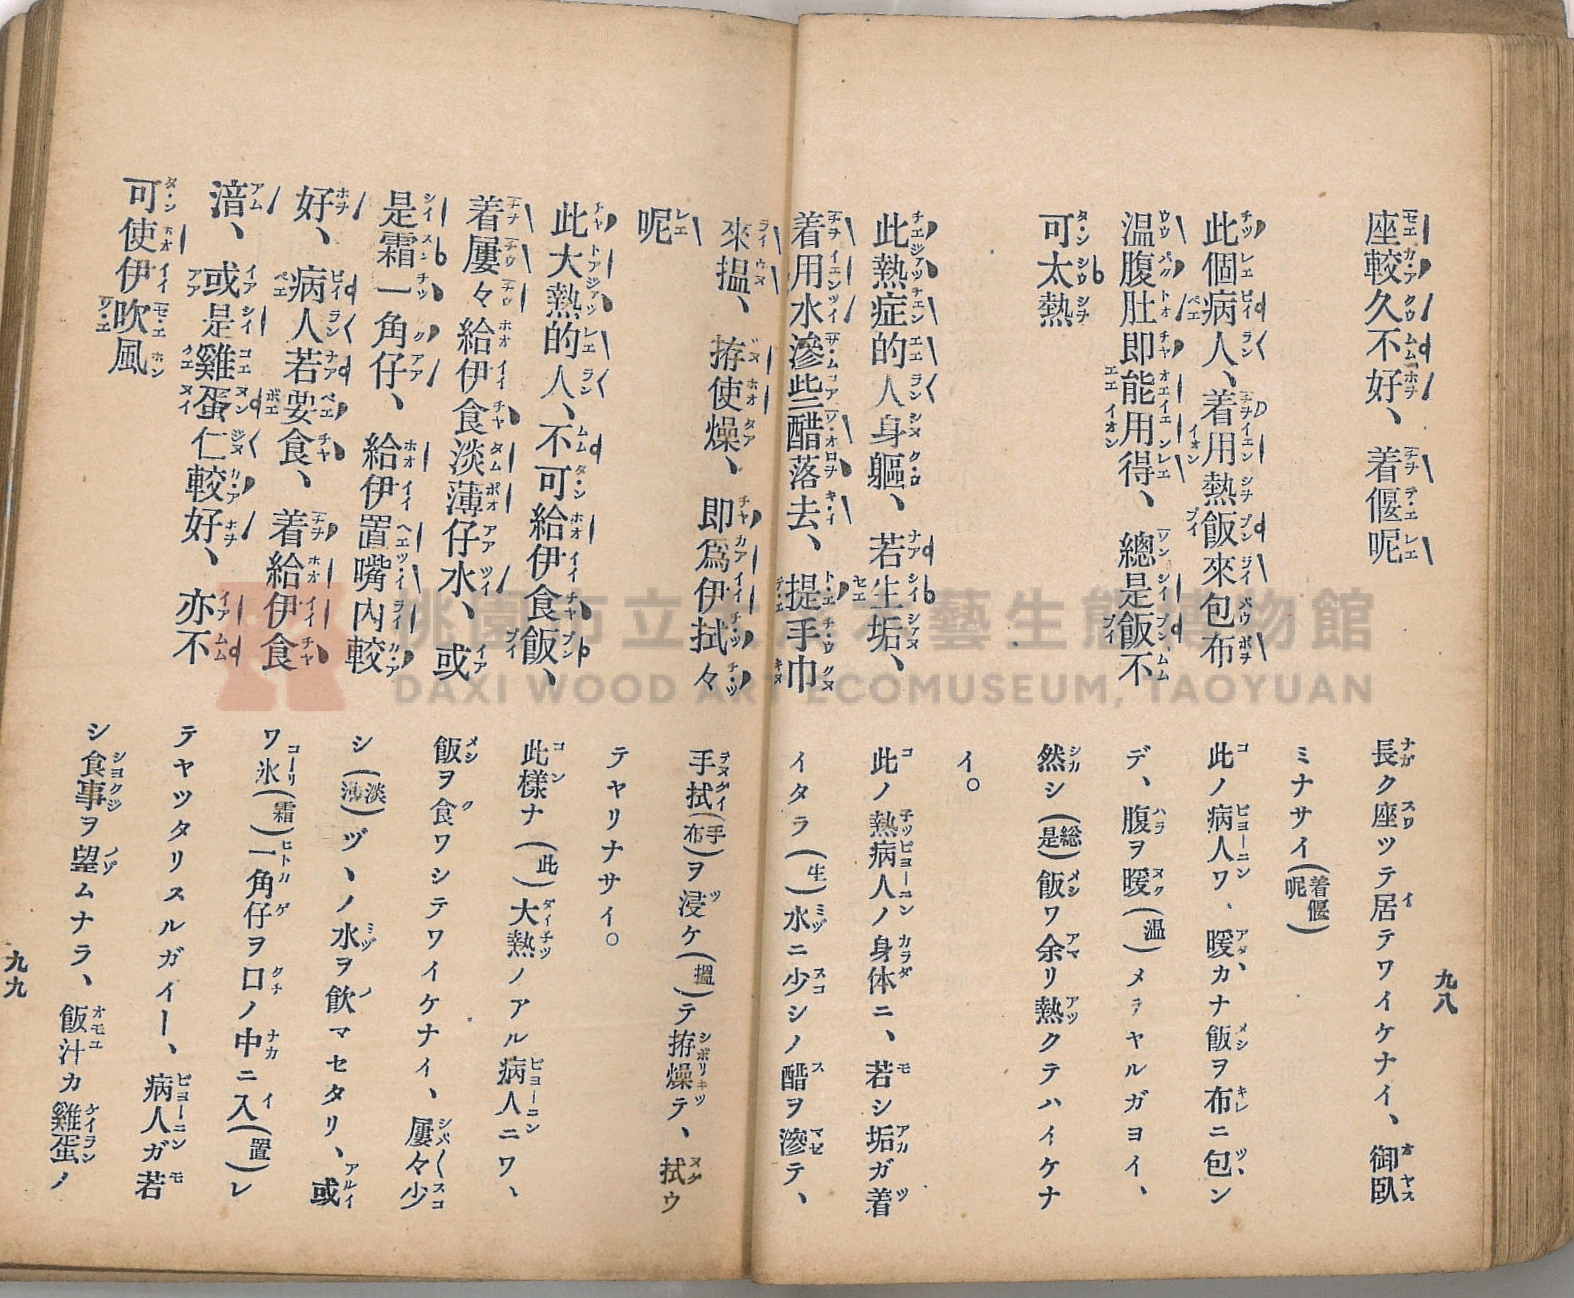 座較久不好、着偃呢
此個病人、着用熱飯來包布
温腹肚即能用得、總是飯不
可太熱
此熱症的人身軀、若生垢、
着用水滲些醋落去、提手巾
來搵、搾使燥、即爲伊拭々
呢
此大熱的人、不可給伊食飯、
着屢々給伊食淡薄仔水、或
是霜一角仔、給伊置嘴內較
好、病人若要食、着給伊食
湆、或是雞蛋仁較好、亦不
可使伊吹風
長ク座ツテ居テワイケナイ、御臥
ミナサイ(着偃呢)
此ノ病人ワ、暖カナ飯ヲ布ニ包ン
デ、腹ヲ暖(温)メテヤルガヨイ、
然シ(総是)飯ワ余リ熱クテハイケナ
イ。
此ノ熱病人ノ身体ニ、若シ垢ガ着
イタラ(生)水ニ少シノ醋ヲ滲テ、
手拭(手布)ヲ浸ケ(搵)テ搾燥テ、拭ウ
テヤリナサイ。
此樣ナ(此)大熱ノアル病人ニワ、
飯ヲ食ワシテワイケナイ、屢々少
シ(淡薄)ヅヽノ水ヲ飲マセタリ、或
ワ氷(霜)一角仔ヲ口ノ中ニ入(置)レ
テヤツタリスルガイー、病人ガ若
シ食事ヲ望ムナラ、飯汁カ雞蛋ノ
九八
九九
桃園市立大溪木藝生態博物館
DAXI WOOD ART ECOMUSEUM, TAOYUAN